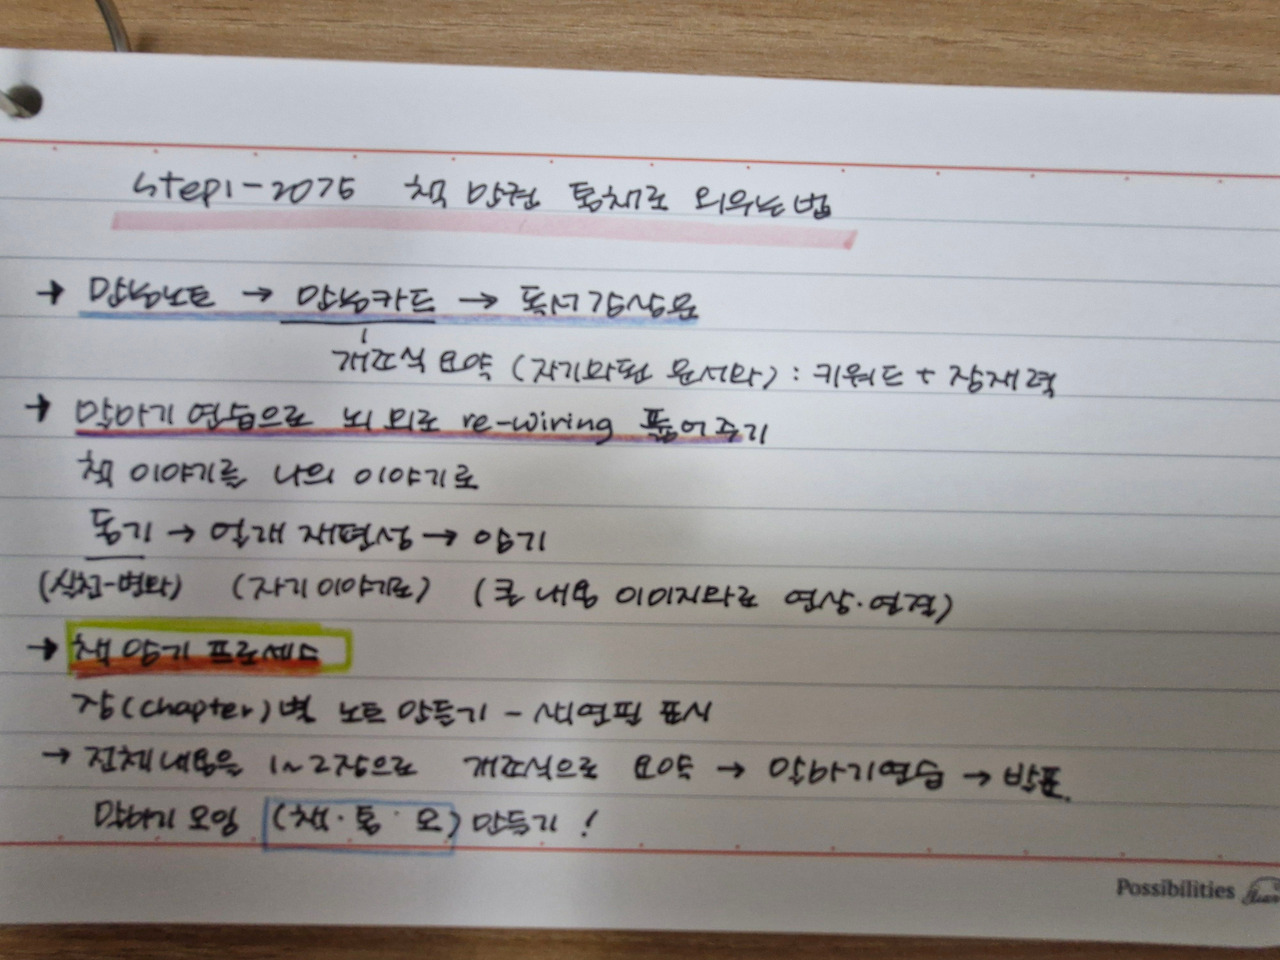 step1-2075 책 만권 통채로 외우는 법
→ 만능노트 → 만능카드 → 독서감상문
개조식 요약 (자기화된 문서화) : 키워드 + 잠재력
→ 말하기 연습으로 뇌 회로 re-wiring 풀어주기
책 이야기를 나의 이야기로
동기 → 얼개 재편성 → 암기
(실천-변화) (자기 이야기로) (큰 내용 이미지화로 연상·연결)
→ 책 암기 프로세스
장(chapter)별 노트 만들기 - 색연필 표시
→ 전체내용을 1~2장으로 개조식으로 요약 → 말하기연습 → 발표.
말하기 모임 (책·통·모) 만들기 !
Possibilities